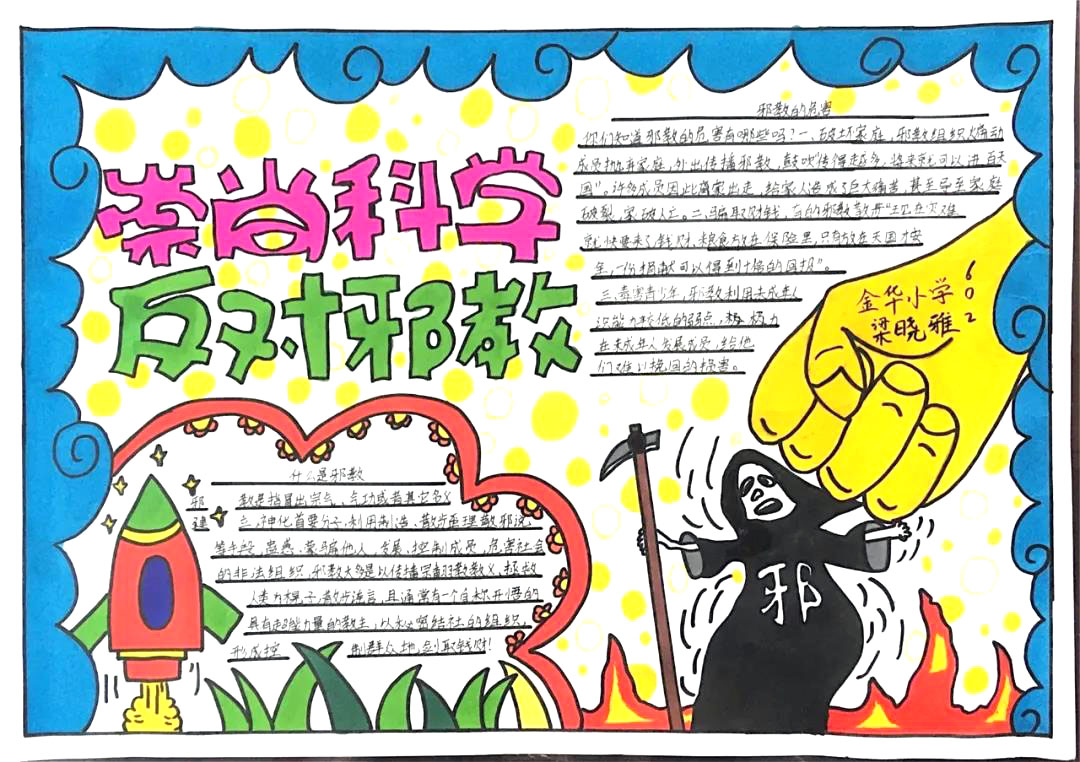 崇尚科学
反对邪教
邪教的危害
你们知道邪教的危害有哪些吗?一、破坏家庭,邪教组织煽动
成员抛弃家庭,外出传播邪教,鼓吹"传得越多,将来就可以进百天
国"。许多成员因此离家出走,给家人造成了巨大痛苦,甚至导至家庭
破裂,家破人亡。二、骗取财钱,有的邪教教唆"现在灾难
就快要来了,钱财、粮食放在保险里,只有放在天国才安
全,一份捐献可以得到十倍的回报"。
三、毒害青少年,邪教利用未成年人
识能力较低的弱点,极力
在未成年人发展成员,给他
们难以挽回的损害。
金华小学
602
梁晓雅
什么是邪教
邪教是指冒出宗气、气功或者其它名义
建立、神化首要分子,利用制造、散步歪理散邪说,
等手段,蛊惑、蒙骗他人,发展、控制成员,危害社会
的非法组织,邪教大多是以传播宗教教义、拯救
人类为幌子,散步谣言,且通常有一个自称开悟的
具有超能力量的教主,以秘密结社的组织,
形成控制群众地,剑取钱财!
邪